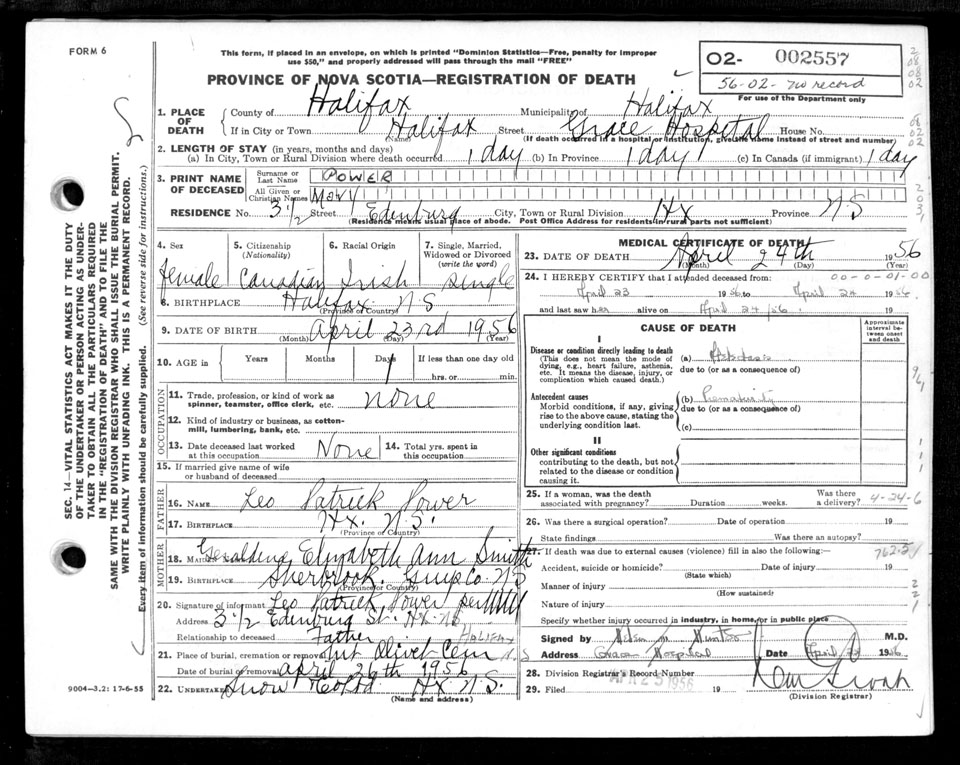 FORM 6
This form, if placed in an envelope, on which is printed "Dominion Statistics—Free, penalty for improper
use $50," and properly addressed will pass through the mail "FREE"
PROVINCE OF NOVA SCOTIA—REGISTRATION OF DEATH
02- 002557
56-02- no record
For use of the Department only
1. PLACE OF DEATH
County of Halifax Municipality of Halifax
If in City or Town Halifax Street Grace Hospital House No.
(Name) (If death occurred in a hospital or institution, give the name instead of street and number)
2. LENGTH OF STAY (in years, months and days)
(a) In City, Town or Rural Division where death occurred 1 day (b) In Province 1 day (c) In Canada (if immigrant) 1 day
3. PRINT NAME OF DECEASED
Surname or Last Name POWER
All Given or Christian Names Mary
RESIDENCE No. 3 1/2 Street Edenburg City, Town or Rural Division Hx Province NS
(Residence means usual place of abode. Post Office Address for residents in rural parts not sufficient)
4. Sex
female
5. Citizenship (Nationality)
Canadian
6. Racial Origin
Irish
7. Single, Married, Widowed or Divorced (write the word)
single
8. BIRTHPLACE Halifax N S
(Province or Country)
9. DATE OF BIRTH April 23rd 1956
(Month) (Day) (Year)
10. AGE in Years Months Days 1 If less than one day old
hrs. or min.
OCCUPATION
11. Trade, profession or kind of work as spinner, teamster, office clerk, etc. none
12. Kind of industry or business, as cotton-mill, lumbering, bank, etc.
13. Date deceased last worked at this occupation None
14. Total yrs. spent in this occupation
15. If married give name of wife or husband of deceased
FATHER
16. NAME Leo Patrick Power
17. BIRTHPLACE Hx. N.S.
(Province or Country)
MOTHER
18. MAIDEN NAME Geraldine Elizabeth Ann Smith
19. BIRTHPLACE Sherbrook. Co. NS
(Province or Country)
20. Signature of informant Leo Patrick Power per
Address 3 1/2 Edenburg St. Hx NS
Relationship to deceased Father
HALIFAX
21. Place of burial, cremation or removal Mt Olivet Cem N.S
Date of burial or removal April 26th 1956
22. UNDERTAKER Snow Co Ltd Hx N.S.
(Name and address)
9004—3.2: 17-6-55
MEDICAL CERTIFICATE OF DEATH
23. DATE OF DEATH April 24th 1956
(Month) (Day) (Year)
24. I HEREBY CERTIFY that I attended deceased from 00-0-01-00
April 23 1956 to April 24 1956
and last saw her alive on April 24/56
CAUSE OF DEATH
Approximate interval between onset and death
I
Disease or condition directly leading to death
(This does not mean the mode of dying, e.g., heart failure, asthenia, etc. It means the disease, injury, or complication which caused death.)
(a)
due to (or as a consequence of)
Antecedent causes
Morbid conditions, if any, giving rise to the above cause, stating the underlying condition last.
(b) Prematurity
due to (or as a consequence of)
(c)
II
Other significant conditions
contributing to the death, but not related to the disease or condition causing it.
25. If a woman, was the death associated with pregnancy? Duration weeks. Was there a delivery? 4-24-6
26. Was there a surgical operation? Date of operation 19
State findings Was there an autopsy?
27. If death was due to external causes (violence) fill in also the following:— 762.5
Accident, suicide or homicide? Date of injury 19
(State which)
Manner of injury
(How sustained)
Nature of injury
Specify whether injury occurred in industry, in home, or in public place
Signed by M.D.
Address Grace Hospital Date April 1956
28. Division Registrar's Record Number
29. Filed APR 25 1956 19
(Division Registrar)
SEC. 14—VITAL STATISTICS ACT MAKES IT THE DUTY
OF THE UNDERTAKER OR PERSON ACTING AS UNDER-
TAKER TO OBTAIN ALL THE PARTICULARS REQUIRED
IN THE "REGISTRATION OF DEATH" AND TO FILE THE
SAME WITH THE DIVISION REGISTRAR WHO SHALL ISSUE THE BURIAL PERMIT.
WRITE PLAINLY WITH UNFADING INK. THIS IS A PERMANENT RECORD.
Every item of information should be carefully supplied. (See reverse side for instructions.)